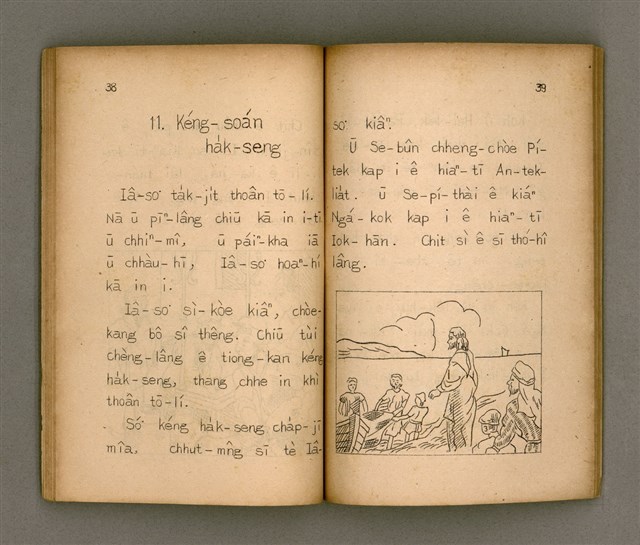 38
11. Kéng-soán
ha̍k-seng
Iâ-so͘ ta̍k-ji̍t thoân tō-lí.
Nā ū pīⁿ-lâng chiū kā in i-tī
ū chhiⁿ-mî, ū pái-kha iā
ū chhàu-hī, Iâ-so͘ hoaⁿ-hí
kā in i.
Iâ-so͘ sì-kòe kiâⁿ, chòe-
kang bô sî thêng. Chiū tùi
chèng-lâng ê tiong-kan kéng
ha̍k-seng, thang chhe in khì
thoân tō-lí.
Só͘ kéng ha̍k-seng cha̍p-jī
mîa, chhut-mn̂g sī tè Iâ-
39
so͘ kiâⁿ.
Ū Se-bûn chheng-chòe Pí-
tek kap i ê hiaⁿ-tī An-tek-
lia̍t. ū Se-pí-thài ê kiáⁿ
Ngá-kok kap i ê hiaⁿ-tī
Iok-hān. Chit sì ê sī thó-hî
lâng.